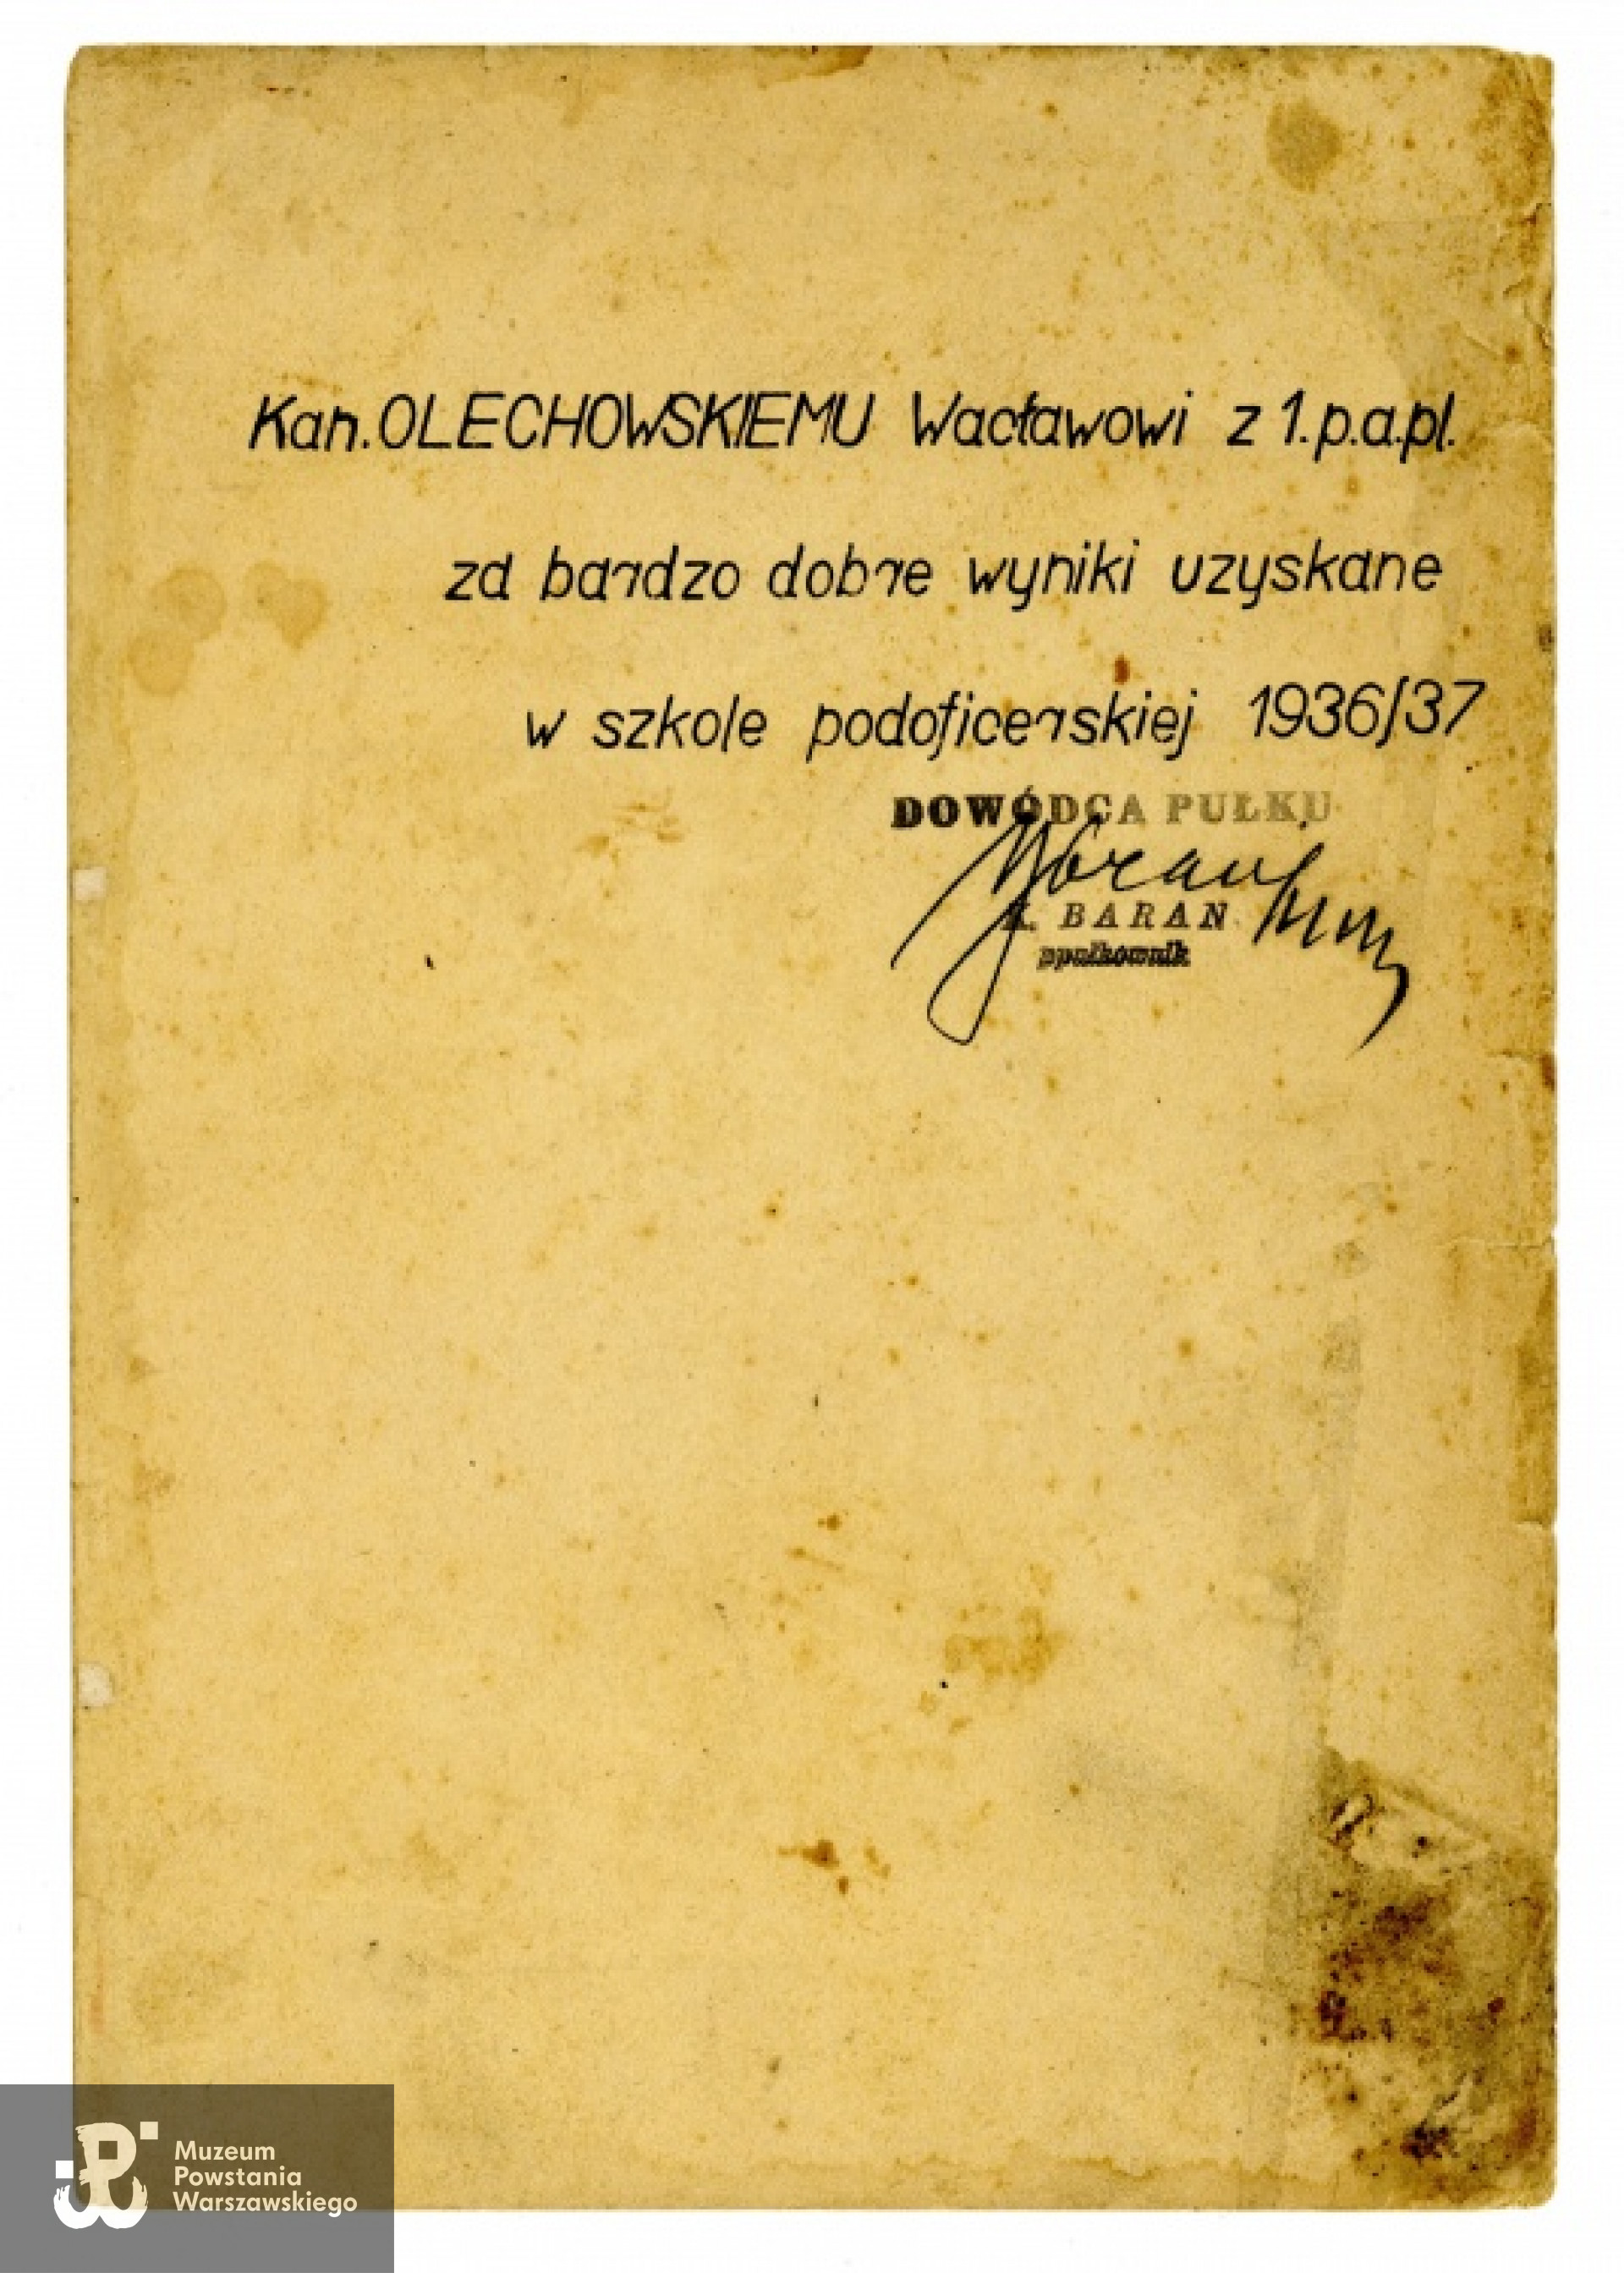 Kan. OLECHOWSKIEMU Wacławowi z 1.p.a.pl.
za bardzo dobre wyniki uzyskane
w szkole podoficerskiej 1936/37
DOWÓDCA PUŁKU
K. BARAN
ppułkownik
Muzeum
Powstania
Warszawskiego